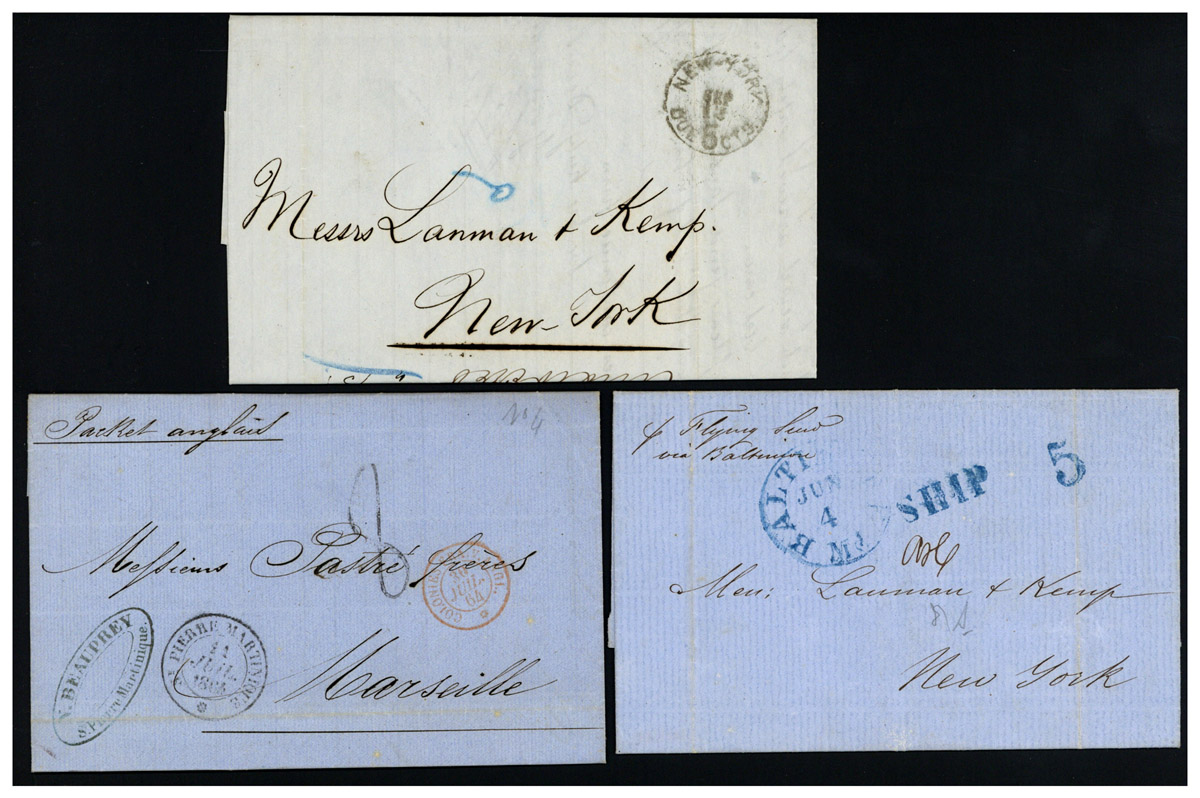 NEW-YORK
SEP
DUE 6 CTS.
Messrs Lanman & Kemp.
New-York
Packet anglais
No 4
8
Messieurs Pastré frères
COLONIES
30
JUIL.
64
ST PIERRE MARTINIQUE
11
JUIL.
1864
V. BEAUPREY
St Pierre Martinique.
Marseille
via Baltimore
BALTI
JUN
4
MD
SHIP
5
Lanman & Kemp
New York